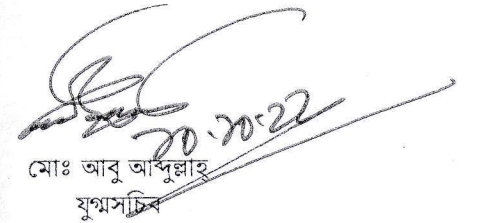 ২০.১০.২২
মোঃ আবু আব্দুল্লাহ্
যুগ্মসচিব